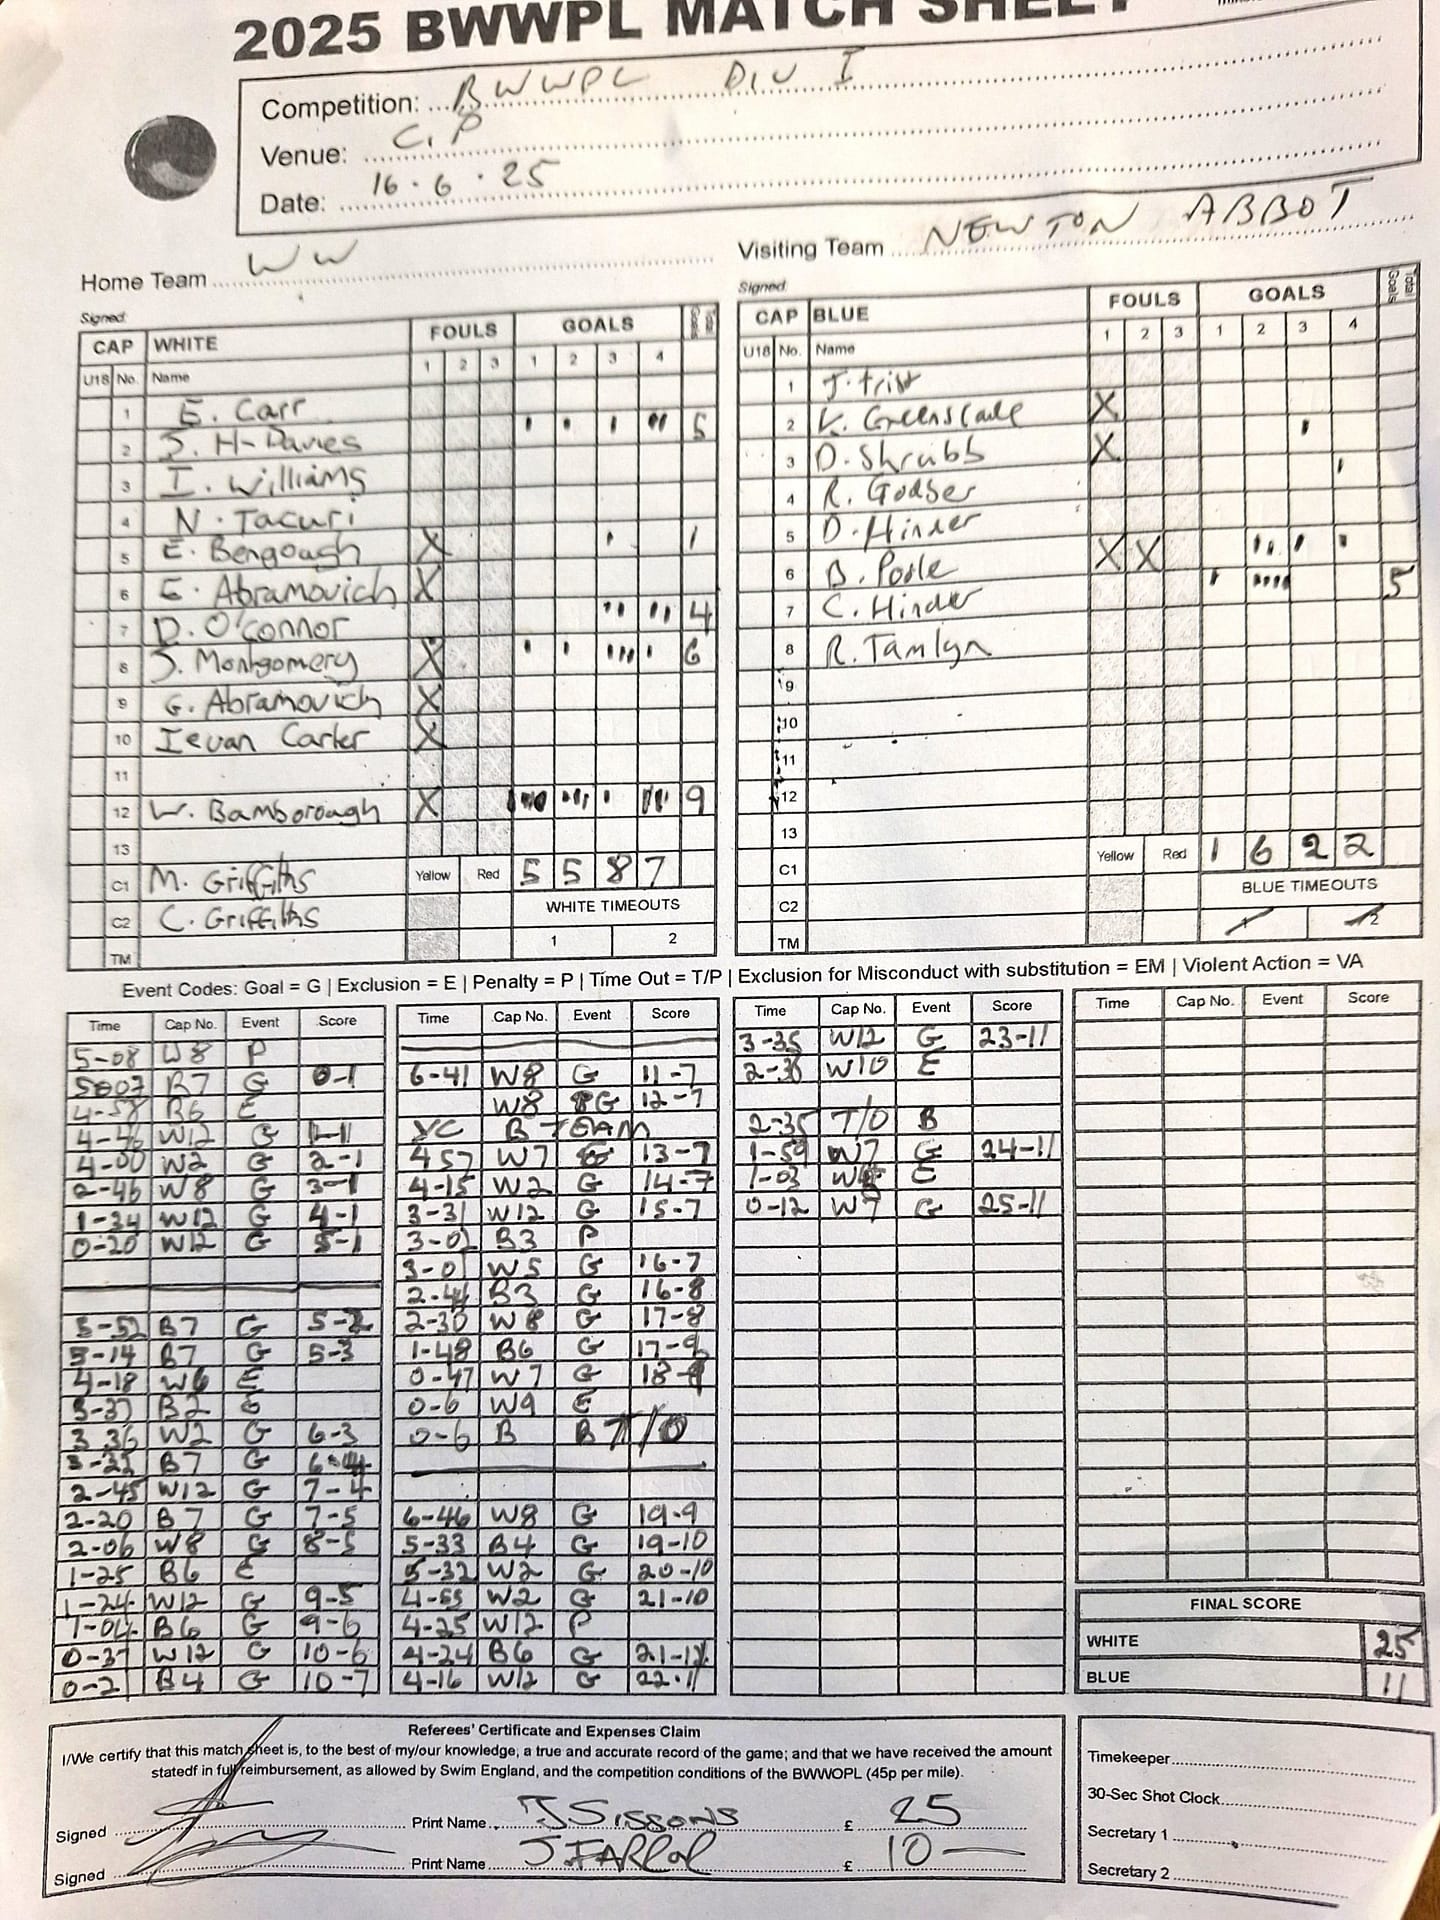 2025 BWWPL MATCH SHEET
Competition: BWWPL DIV I
Venue: C.P
Date: 16.6.25
Home Team WW
Visiting Team NEWTON ABBOT
Signed
Signed
CAP WHITE FOULS GOALS Total Goals
U18 No. Name 1 2 3 1 2 3 4
1 E. Carr
2 J. H-Davies ' ' ' '' 5
3 I. Williams
4 N. Tacuri
5 E. Bengough X ' 1
6 E. Abramovich X
7 D. O'Connor '' '' 4
8 J. Montgomery X ' ' ''' ' 6
9 G. Abramovich X
10 Ieuan Carter X
11
12 W. Bamborough X ''' ''' ' '' 9
13
C1 M. Griffiths Yellow Red 5 5 8 7
C2 C. Griffiths WHITE TIMEOUTS
TM 1 2
CAP BLUE FOULS GOALS Total Goals
U18 No. Name 1 2 3 1 2 3 4
1 J. Frist
2 K. Greenslade X
3 D. Shrubb X '
4 R. Godber '
5 D. Hinder
6 B. Poole X X '' ' '
7 C. Hinder ' '''' 5
8 R. Tamlyn
9
10
11
12
13
C1 Yellow Red 1 6 2 2
C2 BLUE TIMEOUTS
TM 1 2
Event Codes: Goal = G | Exclusion = E | Penalty = P | Time Out = T/P | Exclusion for Misconduct with substitution = EM | Violent Action = VA
Time Cap No. Event Score
5-08 W8 P
5-07 B7 G 0-1
4-58 B6 E
4-46 W12 G 1-1
4-00 W2 G 2-1
2-46 W8 G 3-1
1-34 W12 G 4-1
0-20 W12 G 5-1
5-52 B7 G 5-2
5-14 B7 G 5-3
4-18 W6 E
3-37 B2 E
3-36 W2 G 6-3
3-22 B7 G 6-4
2-45 W12 G 7-4
2-20 B7 G 7-5
2-06 W8 G 8-5
1-25 B6 E
1-24 W12 G 9-5
1-04 B6 G 9-6
0-37 W12 G 10-6
0-2 B4 G 10-7
Time Cap No. Event Score
6-41 W8 G 11-7
W8 G 12-7
YC B TEAM
4 57 W7 G 13-7
4-15 W2 G 14-7
3-31 W12 G 15-7
3-02 B3 P
3-01 W5 G 16-7
2-44 B3 G 16-8
2-30 W8 G 17-8
1-48 B6 G 17-9
0-47 W7 G 18-9
0-6 W9 E
0-6 B B T/O
6-46 W8 G 19-9
5-33 B4 G 19-10
5-32 W2 G 20-10
4-55 W2 G 21-10
4-25 W12 P
4-24 B6 G 21-11
4-16 W12 G 22-11
Time Cap No. Event Score
3-35 W12 G 23-11
2-36 W10 E
2-35 T/O B
1-59 W7 G 24-11
1-03 E
0-12 W7 G 25-11
Time Cap No. Event Score
FINAL SCORE
WHITE 25
BLUE 11
Referees' Certificate and Expenses Claim
I/We certify that this match sheet is, to the best of my/our knowledge, a true and accurate record of the game; and that we have received the amount
statedf in full reimbursement, as allowed by Swim England, and the competition conditions of the BWWOPL (45p per mile).
Signed Print Name J SISSONS £ 25
Signed Print Name J FARROL £ 10
Timekeeper
30-Sec Shot Clock
Secretary 1
Secretary 2